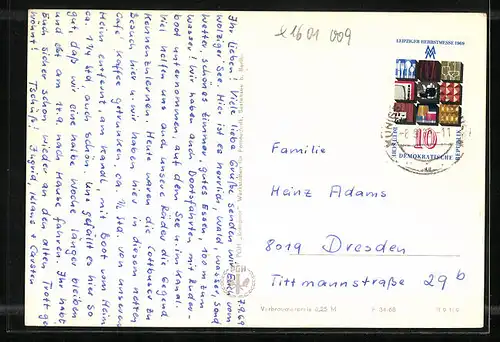 x1601 009
LEIPZIGER HERBSTMESSE 1969
10
DEUTSCHE
DEMOKRATISCHE
REPUBLIK
7.9.69
Ihr Lieben. Viele liebe Grüße senden wir Euch vom
Wolziger See. Hier ist es herrlich, Wald, Wasser, Sand
Wetter, schönes Zimmer, gutes Essen, 100 m zum
Wasser! Wir haben auch Bootfahrten mit Ruder-
boot unternommen, auf dem See u. im Kanal.
Viel helfen uns auch unsere Räder die Gegend
kennenzulernen. Heute waren die Cottbuser zu
Besuch hier u. wir haben hier in diesem netten
Café Kaffee getrunken, ca. ½ Std. von unserem
Heim entfernt, am Kanal, mit Boot vom Heim
ca. 1 ¼ Std, auch schön. Uns gefällt es hier so
gut, daß wir eine halbe Woche länger bleiben
und erst am 17.9. nach Hause fahren. Ihr habt
Euch sicher schon wieder an den alten Trott ge-
wöhnt! Tschüß! Ingrid, Klaus + Carsten
Familie
Heinz Adams
8019 Dresden
Tittmannstraße 29 b
Verbraucherpreis 0,25 M